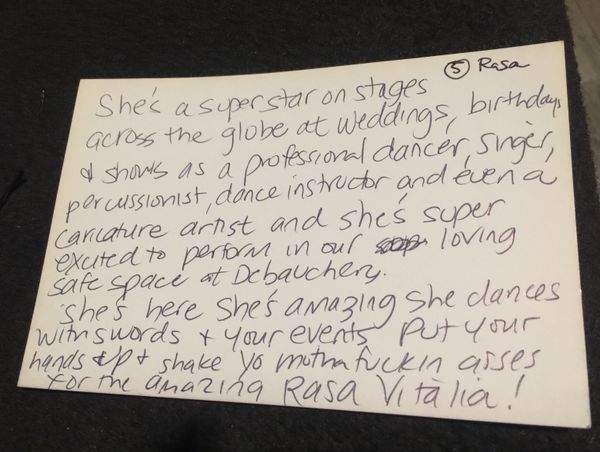 ⑤ Rasa
She's a superstar on stages
across the globe at weddings, birthdays
& shows as a professional dancer, singer,
percussionist, dance instructor and even a
caricature artist and she's super
excited to perform in our loving
safe space at Debauchery.
She's here She's amazing she dances
with swords + your events Put your
hands up + shake yo motha fuckin asses
for the amazing Rasa Vitalia!